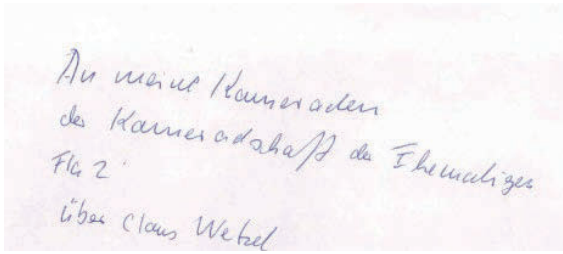 An meine Kameraden
der Kameradschaft der Ehemaligen
Fla 2
über Claus Wetzel